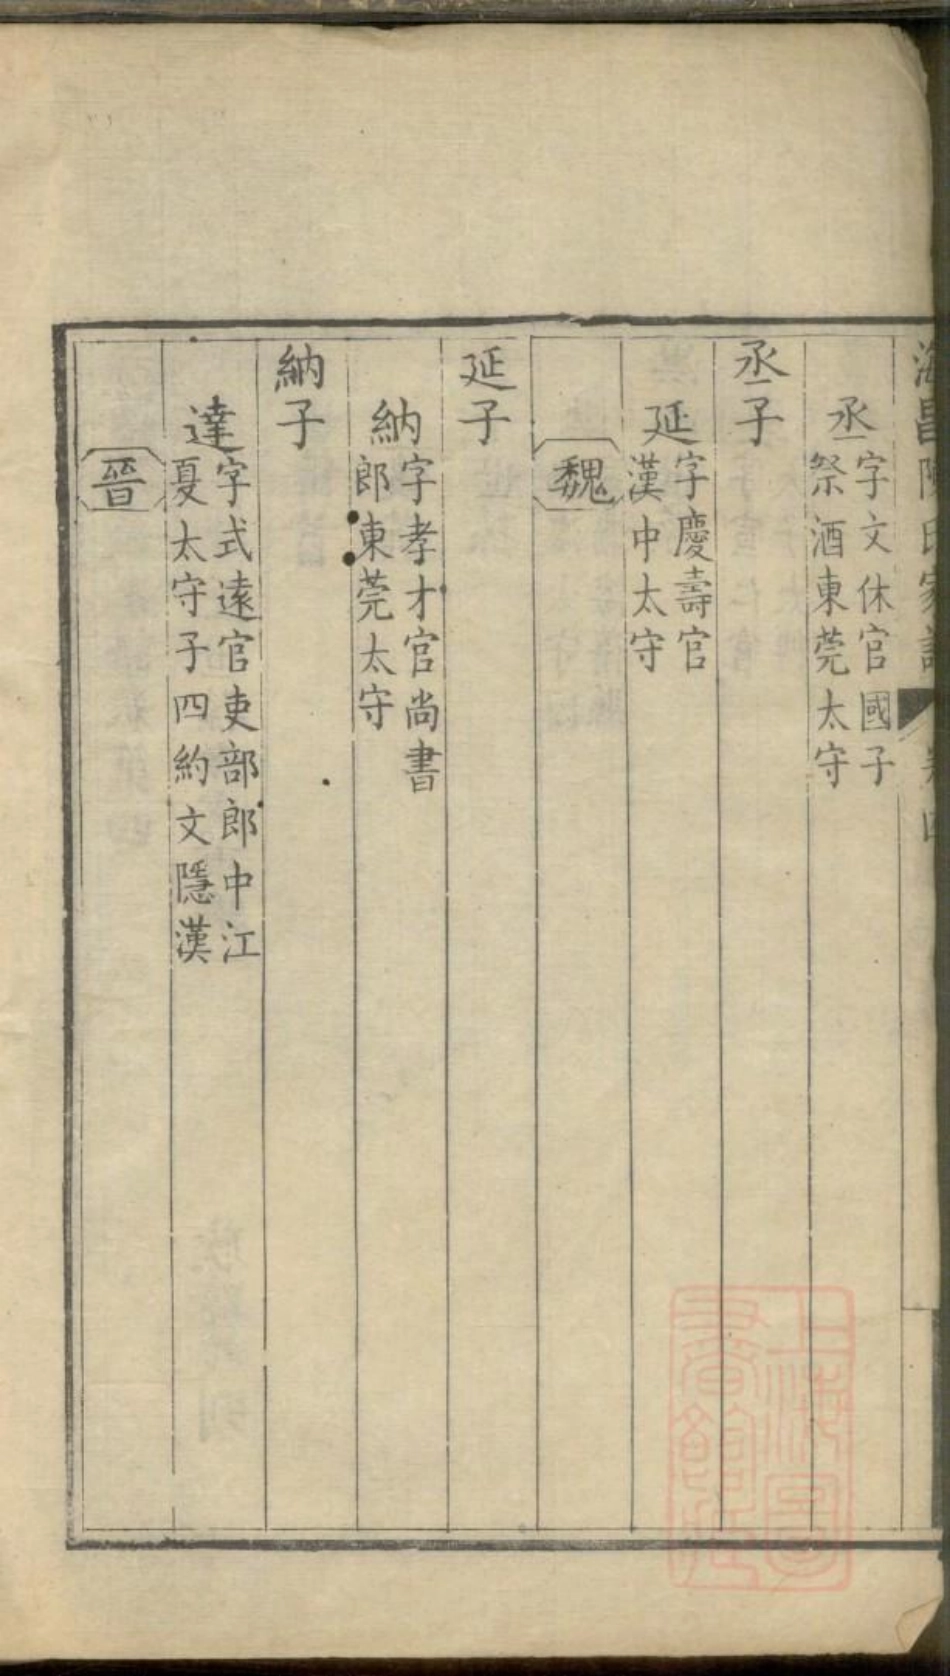 海昌陳氏家譜
丞 字文休官國子
祭酒東莞太守
丞子
延 字慶壽官
漢中太守
魏
延子
納 字孝才官尚書
郎東莞太守
納子
達 字式遠官吏部郎中江
夏太守子四約文隱漢
晉
上海圖
書館藏